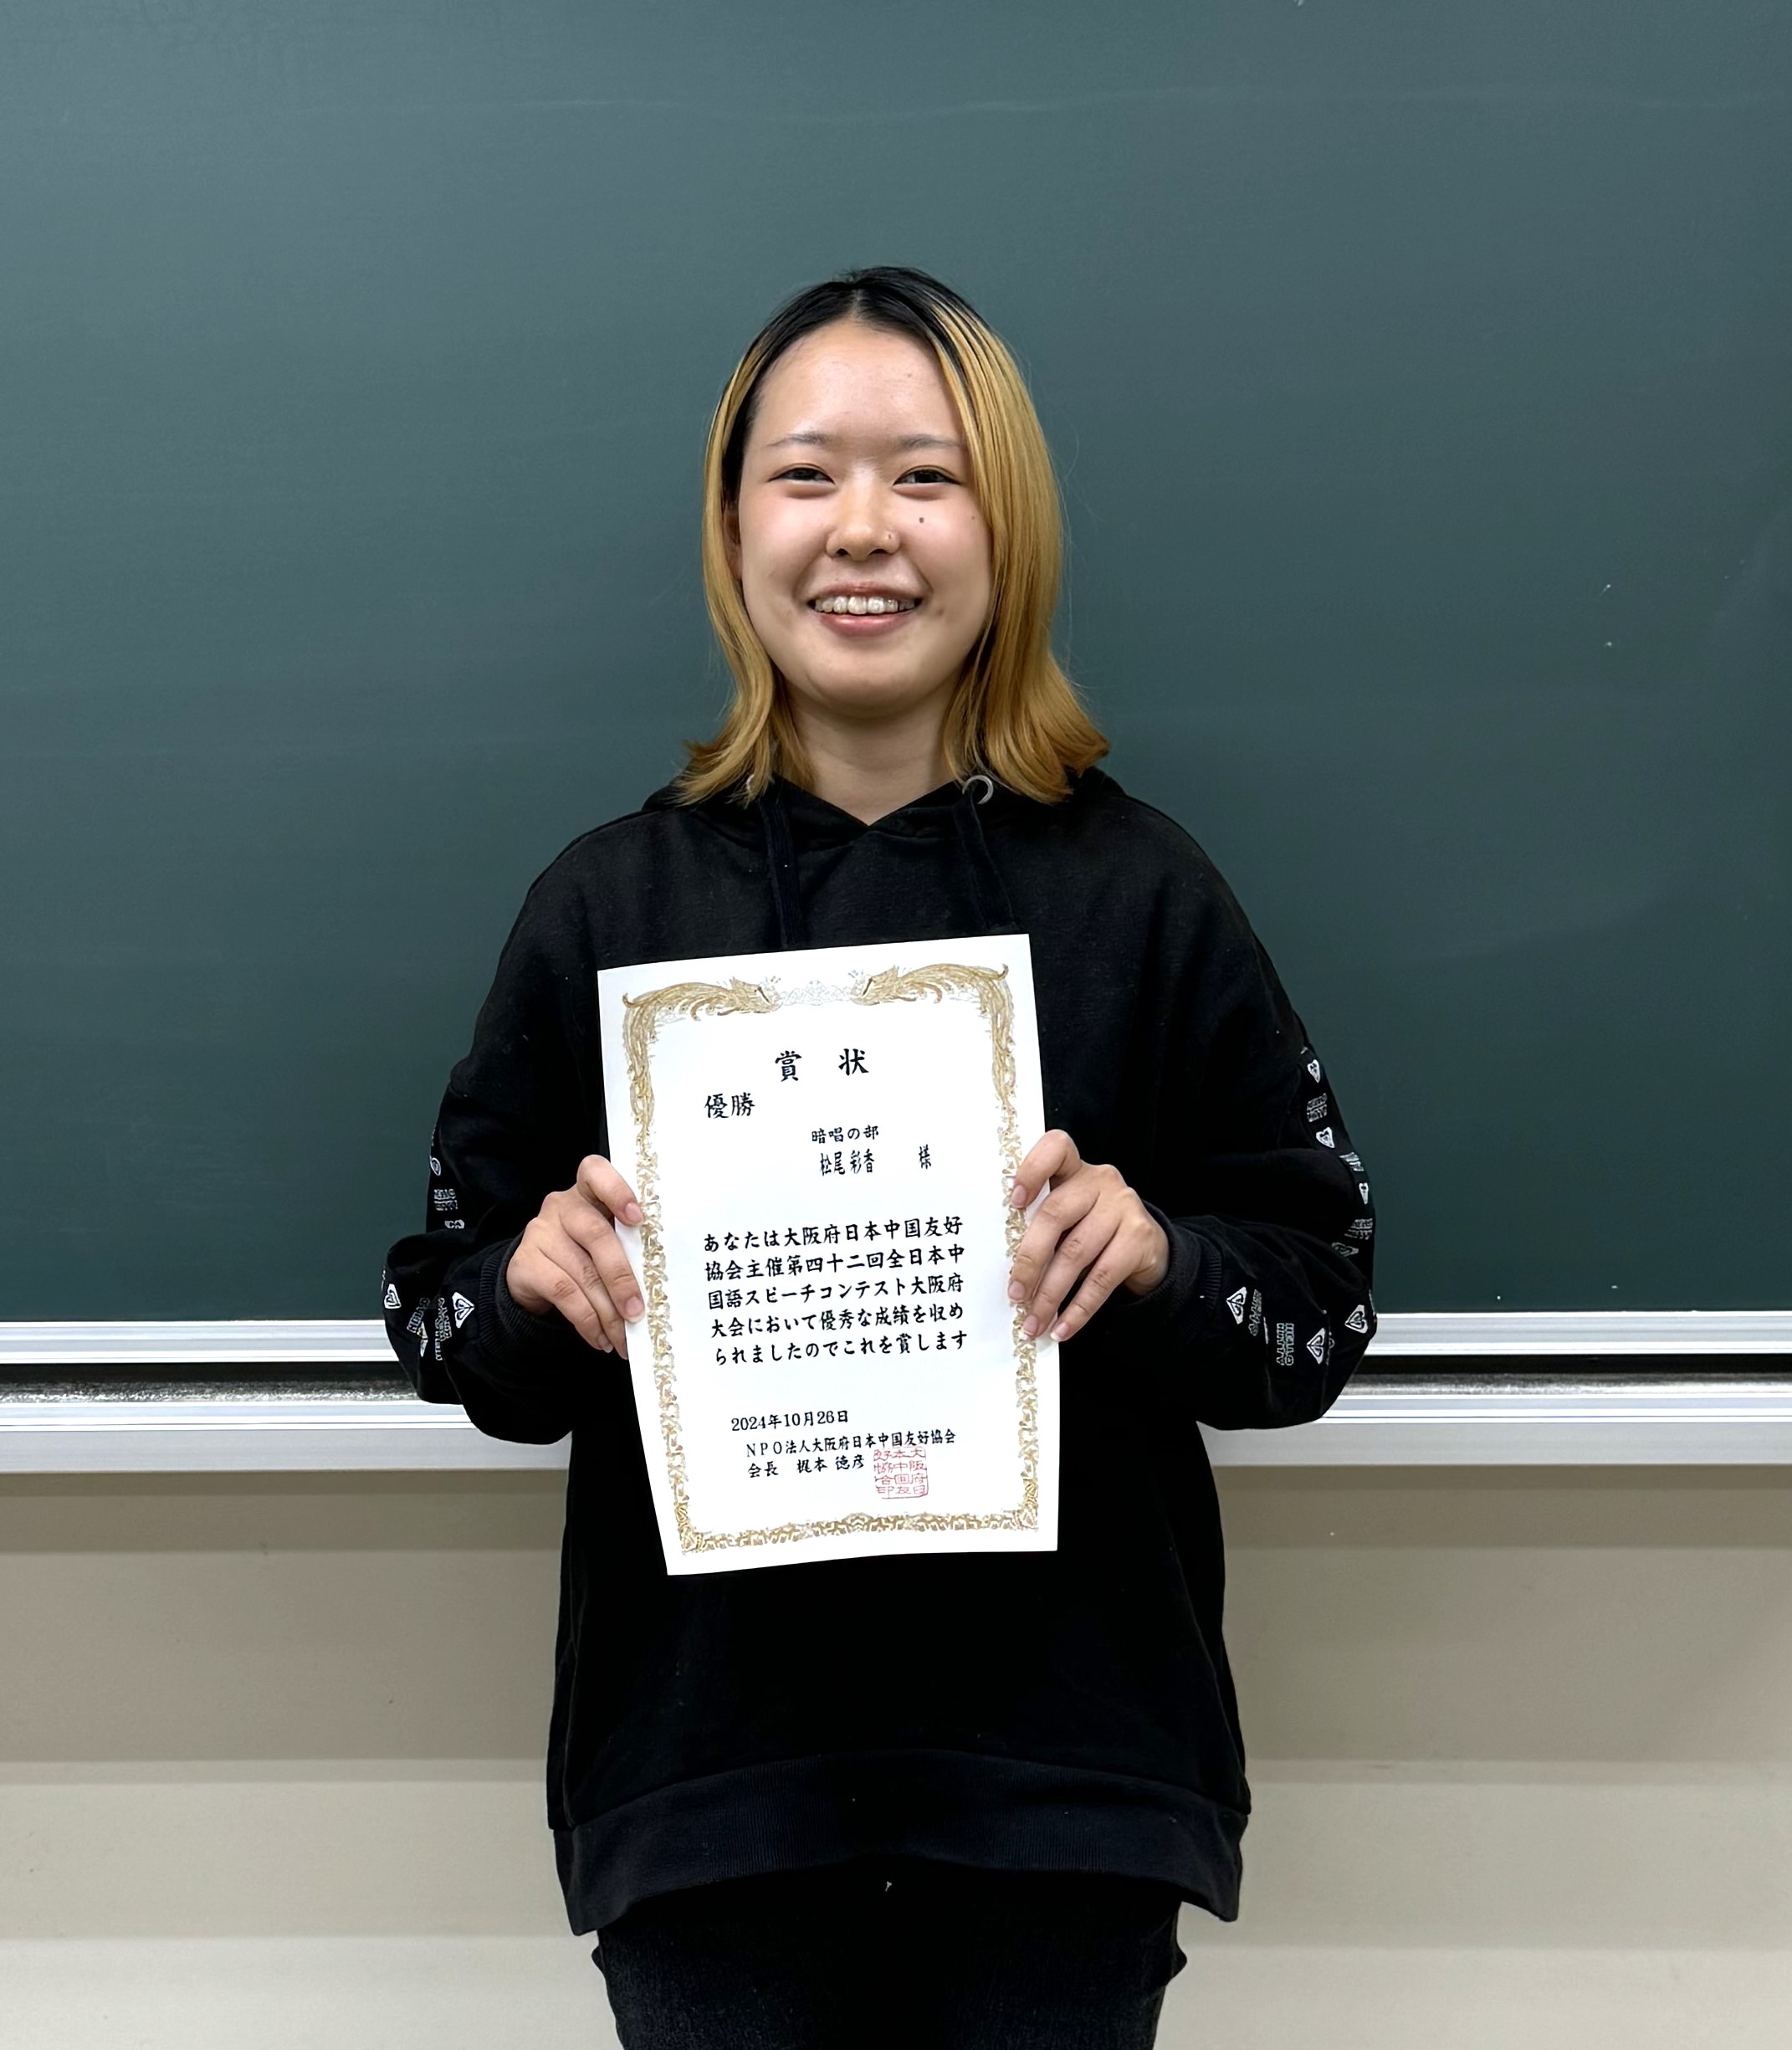 賞 状
優勝
暗唱の部
松尾 彩香 様
あなたは大阪府日本中国友好
協会主催第四十二回全日本中
国語スピーチコンテスト大阪府
大会において優秀な成績を収め
られましたのでこれを賞します
2024年10月26日
NPO法人大阪府日本中国友好協会
会長 梶本 徳彦